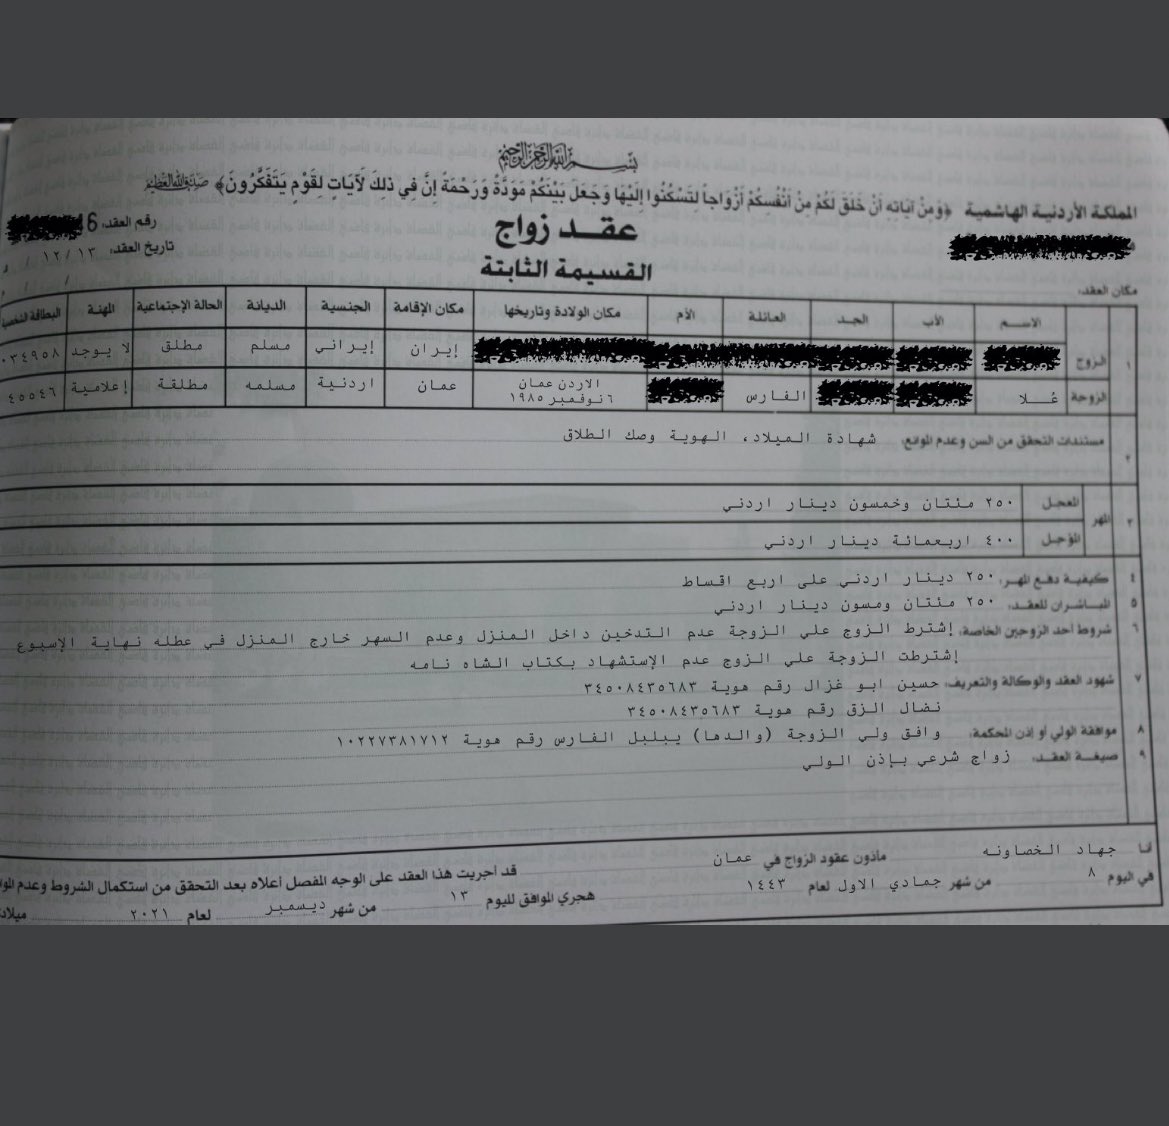 بسم الله الرحمن الرحيم
المملكة الأردنية الهاشمية ﴿وَمِنْ آيَاتِهِ أَنْ خَلَقَ لَكُمْ مِنْ أَنْفُسِكُمْ أَزْوَاجاً لِتَسْكُنُوا إِلَيْهَا وَجَعَلَ بَيْنَكُمْ مَوَدَّةً وَرَحْمَةً إِنَّ فِي ذَلِكَ لَآيَاتٍ لِقَوْمٍ يَتَفَكَّرُونَ﴾ صدق الله العظيم
عقد زواج
رقم العقد: 6
القسيمة الثابتة
تاريخ العقد: ١٢/١٣ /
مكان العقد:
الاسم الأب الجد العائلة الأم مكان الولادة وتاريخها مكان الإقامة الجنسية الديانة الحالة الإجتماعية المهنة البطاقة الشخصية
١ الزوج إيران إيراني مسلم مطلق لا يوجد ٠٣٤٩٥٨
الزوجة عُلا الفارس الاردن عمان ٦ نوفمبر ١٩٨٥ عمان اردنية مسلمه مطلقة إعلامية ٤٥٥٤٦
٢ مستندات التحقق من السن وعدم الموانع: شهادة الميلاد، الهوية وصك الطلاق
٣ المهر المعجل ٢٥٠ مئتان وخمسون دينار اردني
المؤجل ٤٠٠ اربعمائة دينار اردني
٤ كيفية دفع المهر: ٢٥٠ دينار اردني على اربع اقساط
٥ المباشران للعقد: ٢٥٠ مئتان ومسون دينار اردني
٦ شروط أحد الزوجين الخاصة: إشترط الزوج علي الزوجة عدم التدخين داخل المنزل وعدم السهر خارج المنزل في عطله نهاية الإسبوع
إشترطت الزوجة علي الزوج عدم الإستشهاد بكتاب الشاه نامه
٧ شهود العقد والوكالة والتعريف: حسين ابو غزال رقم هوية ٣٤٥٠٨٤٣٥٦٨٣
نضال الزق رقم هوية ٣٤٥٠٨٤٣٥٦٨٣
٨ موافقة الولي أو إذن المحكمة: وافق ولي الزوجة (والدها) يبلبل الفارس رقم هوية ١٠٢٢٧٣٨١٧١٢
٩ صيغة العقد: زواج شرعي بإذن الولي
أنا جهاد الخصاونه مأذون عقود الزواج في عمان قد أجريت هذا العقد على الوجه المفصل أعلاه بعد التحقق من استكمال الشروط وعدم
في اليوم ٨ من شهر جمادي الاول لعام ١٤٤٣ هجري الموافق لليوم ١٣ من شهر ديسمبر لعام ٢٠٢١